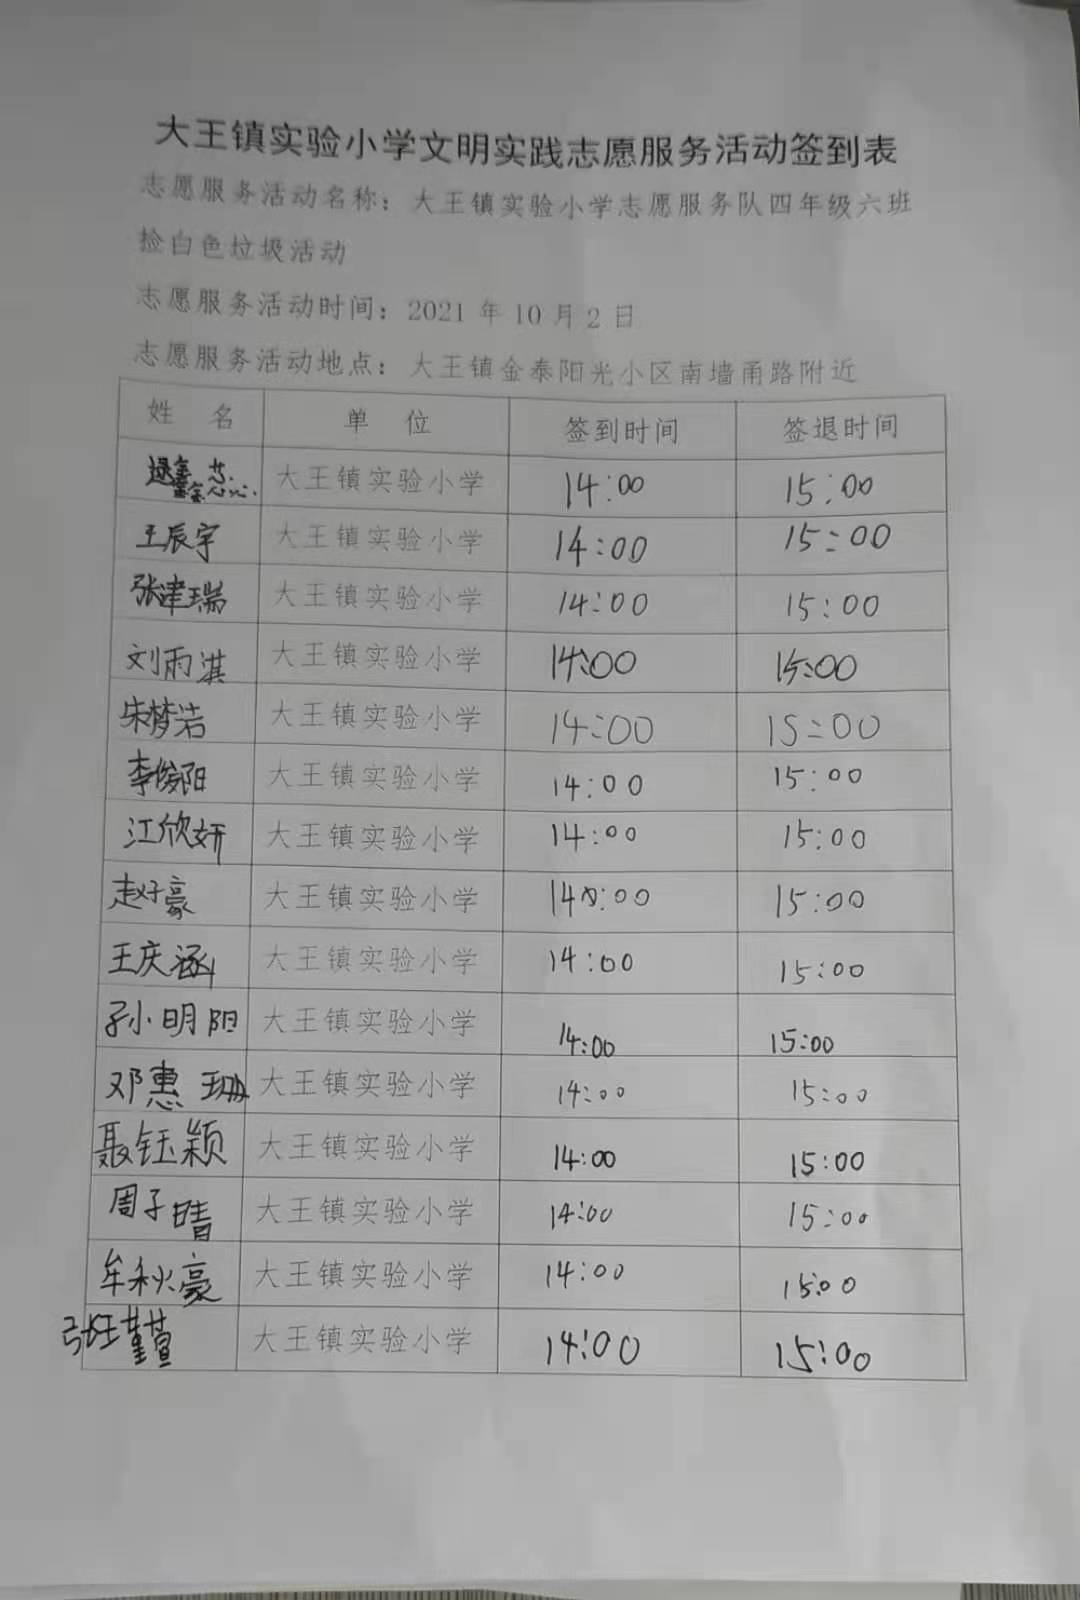 大王镇实验小学文明实践志愿服务活动签到表
志愿服务活动名称：大王镇实验小学志愿服务队四年级六班
捡白色垃圾活动
志愿服务活动时间：2021年10月2日
志愿服务活动地点：大王镇金泰阳光小区南墙甬路附近
姓 名 单 位 签到时间 签退时间
大王镇实验小学 14:00 15:00
王辰宇 大王镇实验小学 14:00 15:00
张津瑞 大王镇实验小学 14:00 15:00
刘雨淇 大王镇实验小学 14:00 15:00
朱梦浩 大王镇实验小学 14:00 15:00
李俊阳 大王镇实验小学 14:00 15:00
江欣妍 大王镇实验小学 14:00 15:00
赵子豪 大王镇实验小学 14:00 15:00
王庆涵 大王镇实验小学 14:00 15:00
孙小明阳 大王镇实验小学 14:00 15:00
邓惠珊 大王镇实验小学 14:00 15:00
聂钰颖 大王镇实验小学 14:00 15:00
周子晴 大王镇实验小学 14:00 15:00
牟秋豪 大王镇实验小学 14:00 15:00
大王镇实验小学 14:00 15:00